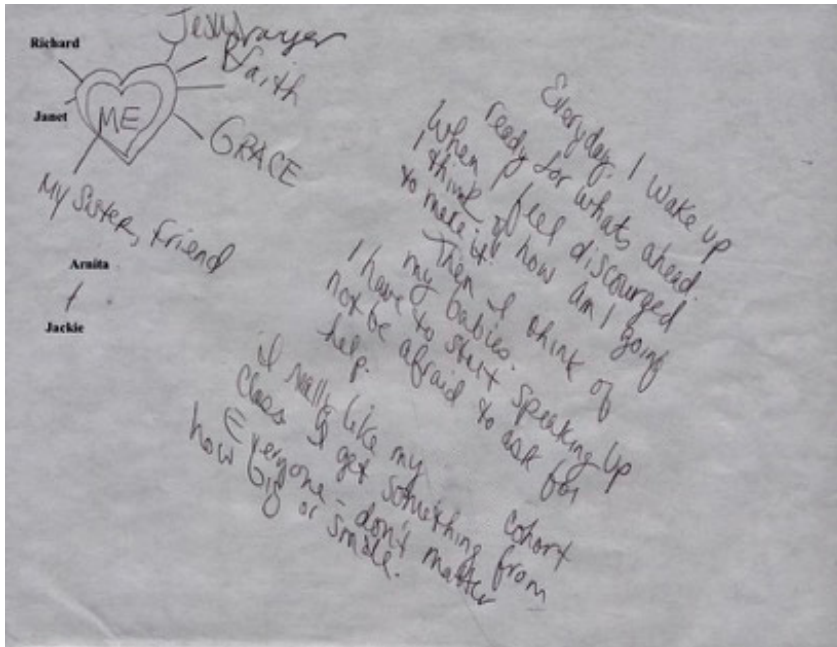 Richard
Jesus
Prayer
Faith
Janet
ME
GRACE
My Sister, Friend
Arnita
Jackie
Everyday I wake up
ready for whats ahead.
When I feel discourged
I think of how am I going
to make it.
Then I think of
my babies.
I have to start speaking up
not be afraid to ask for
help.
I really like my cohort
class I get something from
Everyone - don't matter
how big or small.